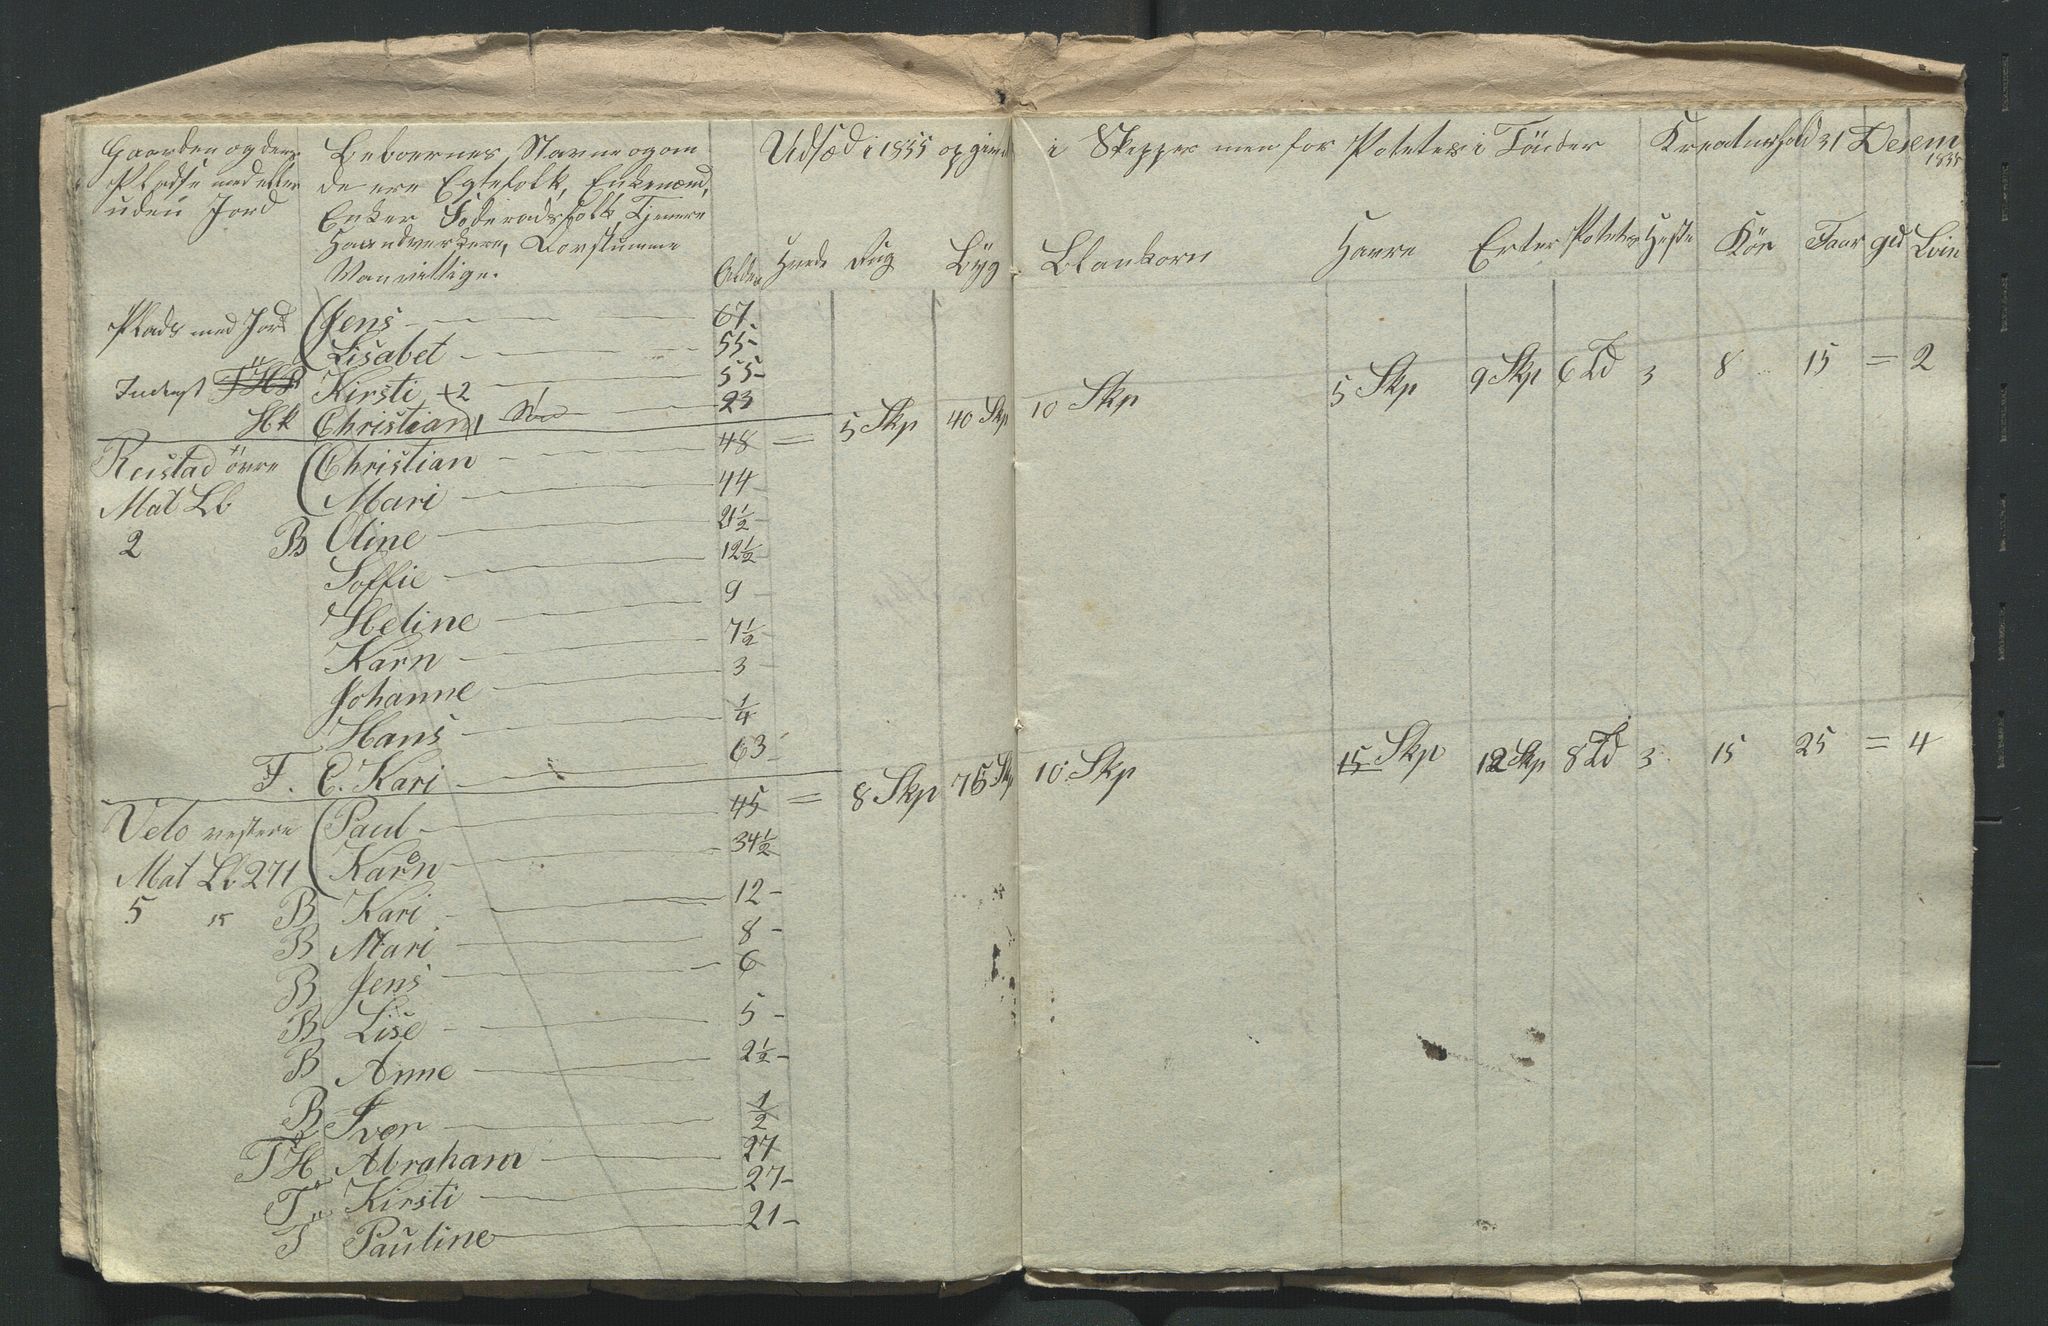 Gaarden og dens
Pladse med eller
uden Jord
Beboernes Navne og om
de ere Egtefolk, Enkemænd,
Enker Föderadsfolk, Tjenere
Haandverkere, Dövstumme
Vanvittige.
Alder
Udsæd i 1835 opgivet i Skepper men for Poteter i Tönder
Kreaturhold 31 Desem
1835
Hvede Rug Byg Blankorn Havre Erter Poteter Heste Kör Faar ged Svin
Plads med Jord Jens 67
Lisabet 55
Inderst Kirsti +2 55
Hk Christian 1 Sön 23
= 5 Skp 40 Skp 10 Skp 5 Skp 9 Skp 6 Td 3 8 15 = 2
Reistad övre Christian 48
Mat Lb Mari 44
2 B Oline 21 1/2
Soffie 12 1/2
Heline 9
Karn 7 1/2
Johanne 3
Hans 1/4
F. E. Kari 63
= 8 Skp 76 Skp 10 Skp 15 Skp 12 Skp 8 Td 3 15 25 = 4
Velo vestere Paul 45
Mat Lb 271 Karn 34 1/2
5 15 B Kari 12
B Mari 8
B Jens 6
B Lise 5
B Anne 2 1/2
B Iver 1/2
T H Abraham 27
T Kirsti 27
T Pauline 21